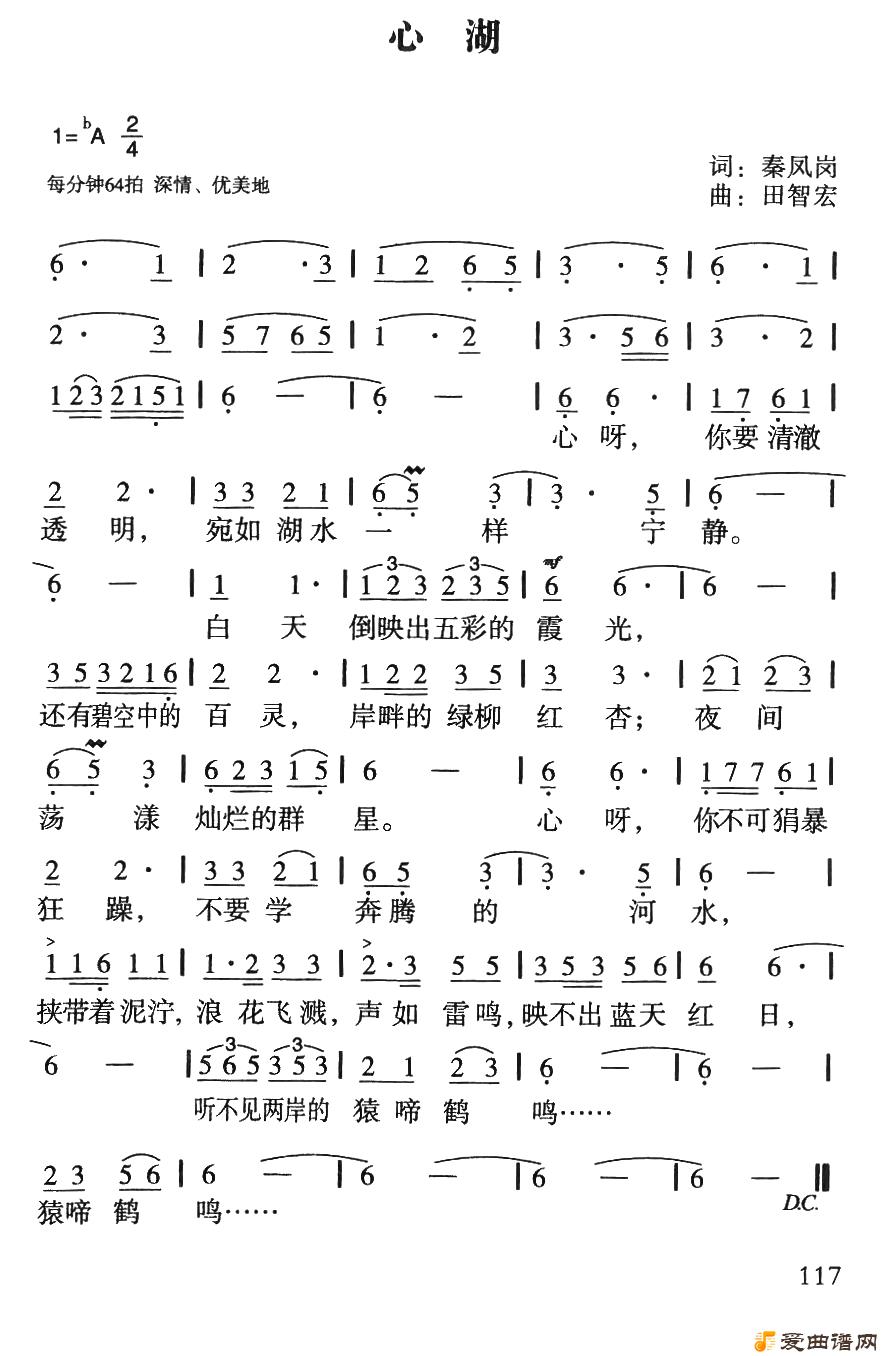 心 湖
1=ᵇA 2/4
每分钟64拍 深情、优美地
词：秦凤岗
曲：田智宏
6 · 1 | 2 · 3 | 1 2 6 5 | 3 · 5 | 6 · 1 |
2 · 3 | 5 7 6 5 | 1 · 2 | 3 · 5 6 | 3 · 2 |
1 2 3 2 1 5 1 | 6 — | 6 — | 6 6 · | 1 7 6 1 |
心 呀， 你要 清澈
2 2 · | 3 3 2 1 | 6 5 3 | 3 · 5 | 6 — |
透 明， 宛如 湖水 一 样 宁 静。
6 — | 1 1 · | 1 2 3 2 3 5 | 6 6 · | 6 — |
3 3 mf
白 天 倒映出五彩的 霞 光，
3 5 3 2 1 6 | 2 2 · | 1 2 2 3 5 | 3 3 · | 2 1 2 3 |
还有碧空中的 百 灵， 岸畔的 绿柳 红 杏； 夜 间
6 5 3 | 6 2 3 1 5 | 6 — | 6 6 · | 1 7 7 6 1 |
荡 漾 灿烂的群 星。 心 呀， 你不可狷暴
2 2 · | 3 3 2 1 | 6 5 3 | 3 · 5 | 6 — |
狂 躁， 不要 学 奔腾 的 河 水，
1 1 6 1 1 | 1 · 2 3 3 | 2 · 3 5 5 | 3 5 3 5 5 | 6 6 · |
> >
挟带着泥泞，浪 花飞溅，声如 雷鸣，映不出蓝天 红 日，
6 — | 5 6 5 3 5 3 | 2 1 2 3 | 6 — | 6 — |
3 3
听不见两岸的 猿 啼 鹤 鸣……
2 3 5 6 | 6 — | 6 — | 6 — | 6 — ‖
D.C.
猿啼 鹤 鸣……
117
爱曲谱网